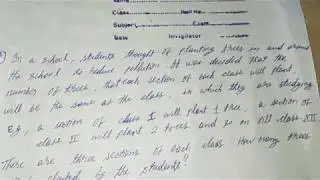 Class Roll No.
Subject Exam
Date Invigilator
In a school, students thought of planting trees in and around
the school to reduce pollution. It was decided that the
number of trees, that each section of each class will plant,
will be the same as the class, in which they are studying
Eg, a section of class I will plant 1 tree, a section of
class II will plant 2 trees and so on till class XII.
There are three sections of each class. How many trees
planted by the students?